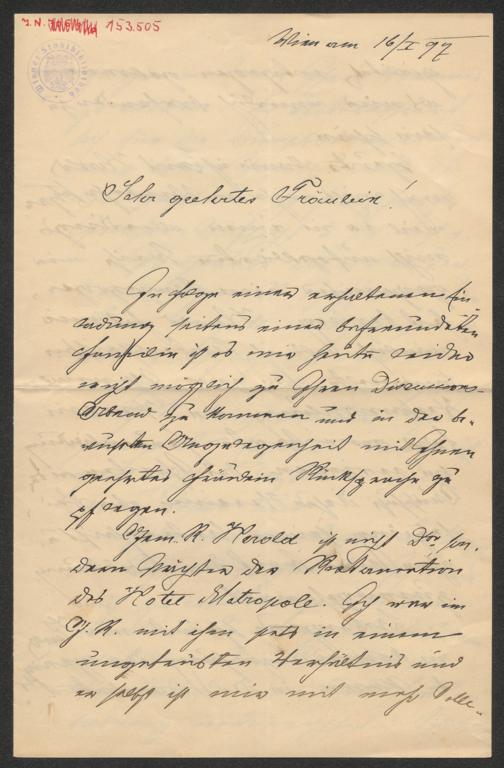 J. N. 153.505
Wiener Stadtbibliothek
Wien am 16/I 97
Sehr geehrtes Fräulein!
In folge einer erhaltenen Ein-
ladung seitens einer befreundeten
Familie ist es mir heute leider
nicht möglich zu Ihrem Discussions-
Abend zu kommen und in der be-
wußten Angelegenheit mit Ihnen
geehrtes Fräulein Rücksprache zu
pflegen.
R. Herold ist nicht Dor son-
dern Pächter der Restauration
des Hotel Metropole. Ich war im
J. R. mit ihm stets in einem
ungetrübten Verhältnis und
er selbst ist mir mit